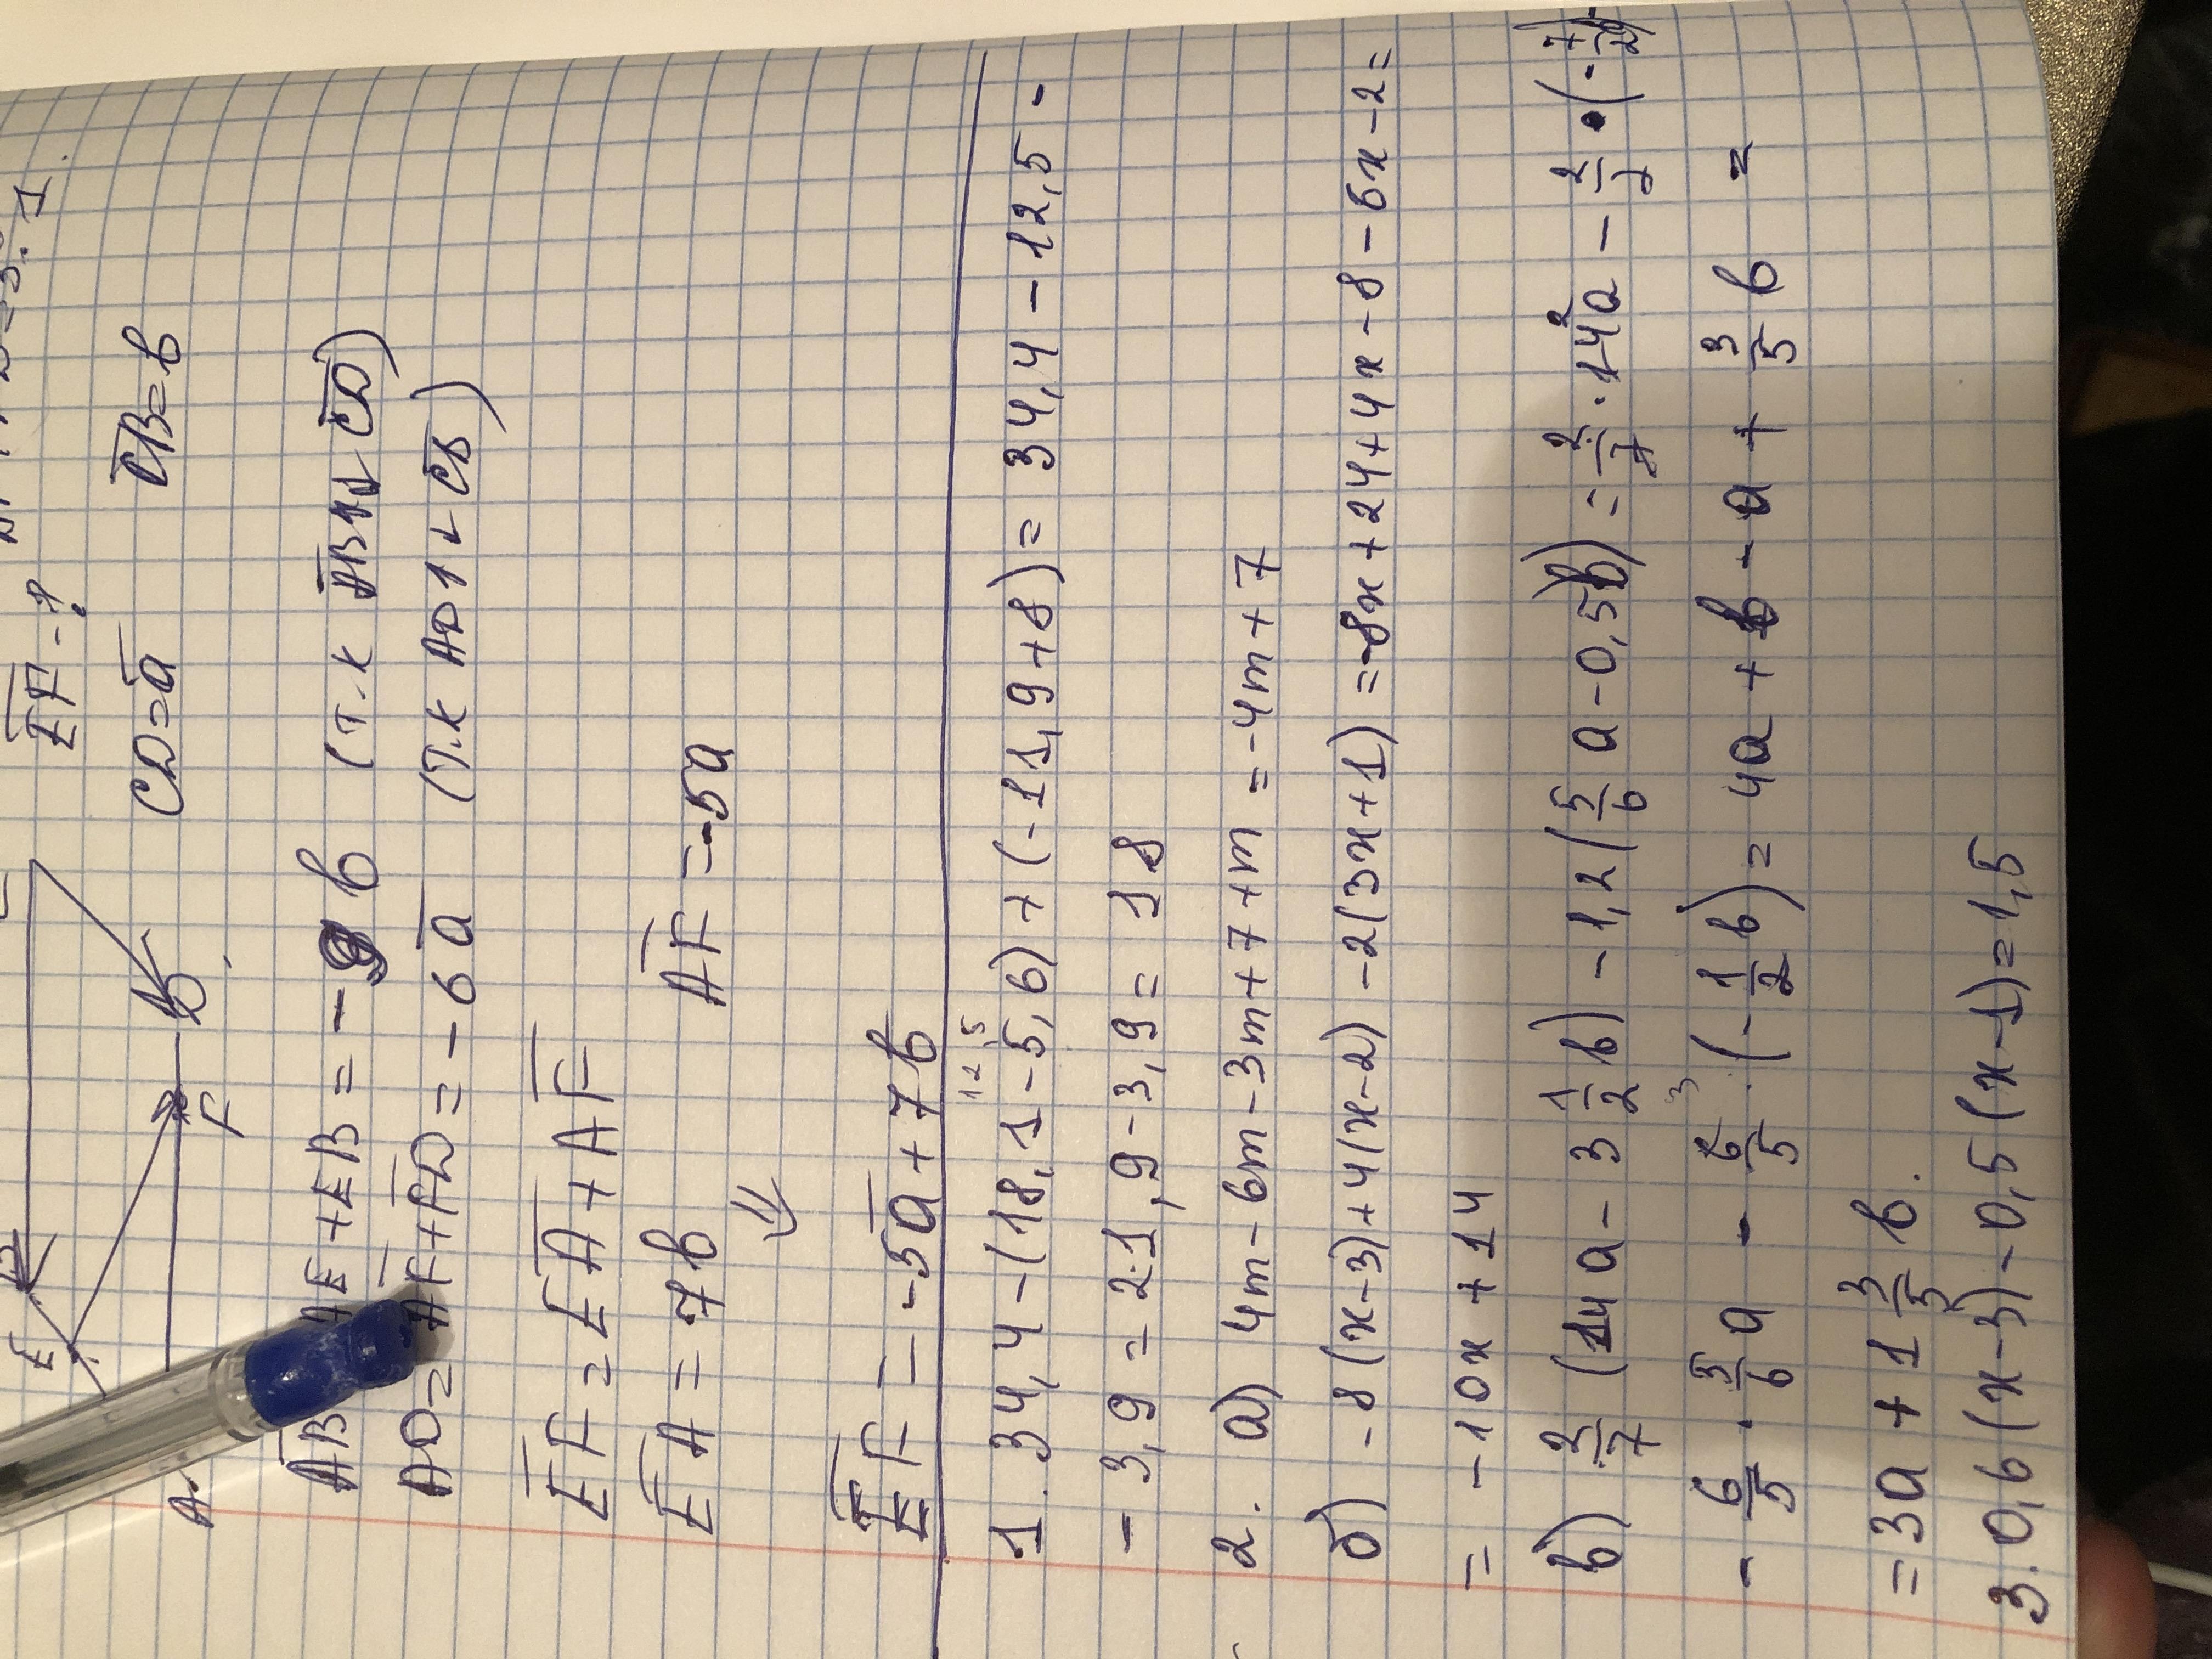 EF - ?
CD = a CB = b
E
B
F
A
AB = AE + EB = - b (т.к AB ↑↓ CD)
AD = AF + FD = - 6 a (т.к AD ↑↓ CB)
EF = EA + AF
EA = 7b AF = -5a
⇓
EF = -5a + 7b
12,5
1. 34,4 - (18,1 - 5,6) + (-11,9 + 8) = 34,4 - 12,5 -
- 3,9 = 21,9 - 3,9 = 18
2. а) 4m - 6m - 3m + 7 + m = -4m + 7
б) -8(x-3) + 4(x-2) - 2(3x+1) = -8x + 24 + 4x - 8 - 6x - 2 =
= -10x + 14
в) 2/7 (14a - 3 1/2 b) - 1,2 (5/6 a - 0,5b) = 2/7 · 14a - 2/7 · (-7/2)
- 6/5 · 5/6 a - 6/5 · (-1/2 b) = 4a + b - a + 3/5 b =
= 3a + 1 3/5 b.
3. 0,6 (x-3) - 0,5 (x-1) = 1,5